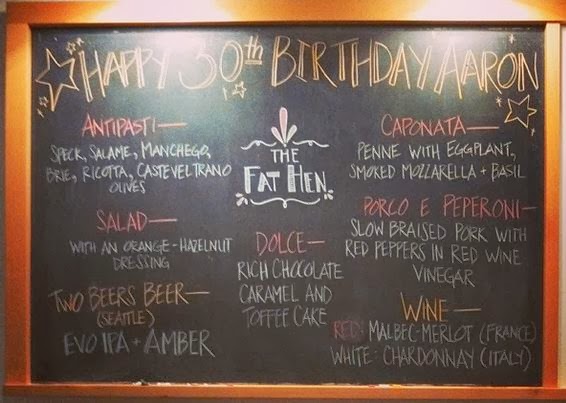 HAPPY 30th BIRTHDAY AARON
ANTIPASTI—
SPECK, SALAME, MANCHEGO,
BRIE, RICOTTA, CASTEVELTRANO
OLIVES
SALAD—
WITH AN ORANGE-HAZELNUT
DRESSING
TWO BEERS BEER—
(SEATTLE)
EVO IPA + AMBER
THE
FAT HEN
DOLCE—
RICH CHOCOLATE
CARAMEL AND
TOFFEE CAKE
CAPONATA—
PENNE WITH EGGPLANT,
SMOKED MOZZARELLA + BASIL
PORCO E PEPERONI—
SLOW BRAISED PORK WITH
RED PEPPERS IN RED WINE
VINEGAR
WINE—
RED: MALBEC-MERLOT (FRANCE)
WHITE: CHARDONNAY (ITALY)